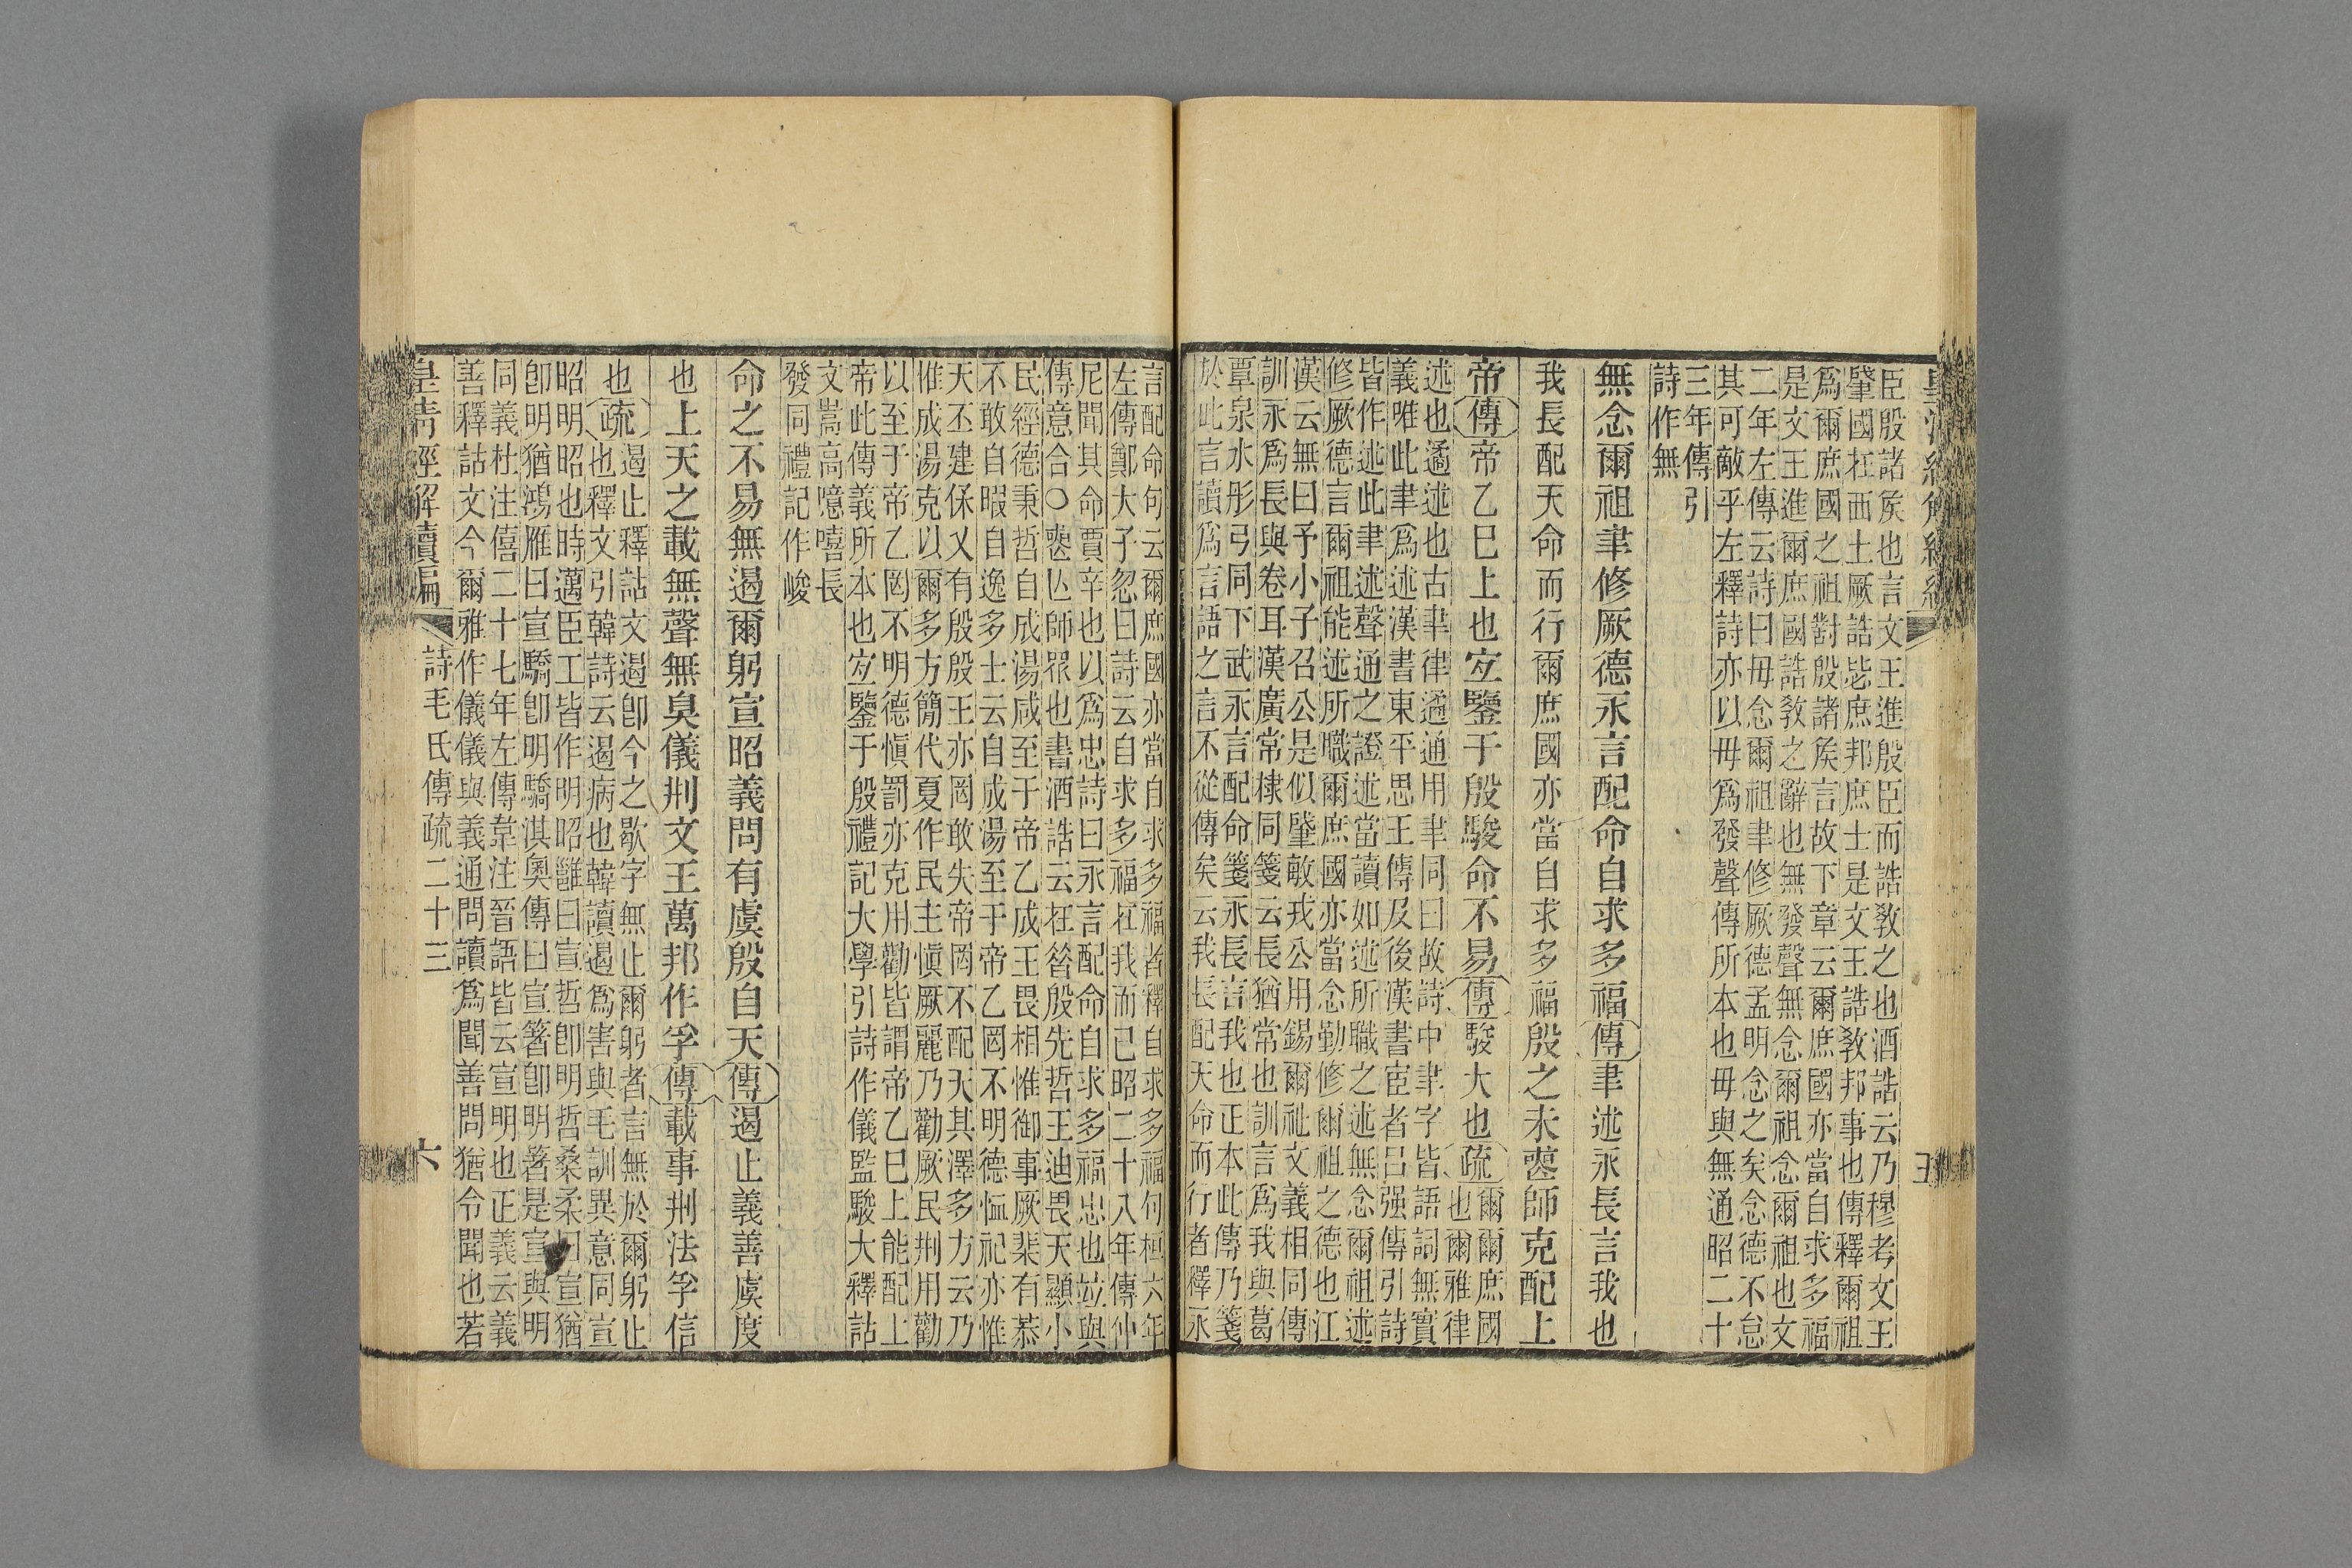 臣殷諸矦也言文王進殷臣而誥敎之也酒誥云乃穆考文王
肇國在西土厥誥毖庶邦庶士是文王誥敎邦事也傳釋爾祖
爲爾庶國之祖對殷諸矦言故下章云爾庶國亦當自求多福
是文王進爾庶國誥敎之辭也無發聲無念爾祖念爾祖也文
二年左傳云詩曰毋念爾祖聿修厥德孟明念之矣念德不怠
其可敵乎左釋詩亦以毋爲發聲傳所本也毋與無通昭二十
三年傳引
詩作無
無念爾祖聿修厥德永言配命自求多福傳聿述永長言我也
我長配天命而行爾庶國亦當自求多福殷之未喪師克配上
帝傳帝乙已上也宜鑒于殷駿命不易傳駿大也疏爾爾庶國
也爾雅律
述也遹述也古聿律遹通用聿同曰故詩中聿字皆語詞無實
義唯此聿爲述漢書東平思王傳及後漢書宦者呂强傳引詩
皆作述此聿述聲通之證述當讀如述所職之述無念爾祖述
修厥德言爾祖能述所職爾庶國亦當念勤修爾祖之德也江
漢云無曰予小子召公是似肇敏戎公用錫爾祉文義相同傳
訓永爲長與卷耳漢廣常棣同箋云長猶常也訓言爲我與葛
覃泉水彤弓同下武永言配命箋永長言我也正本此傳乃箋
於此言讀爲言語之言不從傳矣云我長配天命而行者釋永
言配命句云爾庶國亦當自求多福者釋自求多福句桓六年
左傳鄭大子忽曰詩云自求多福在我而已昭二十八年傳仲
尼聞其命賈辛也以爲忠詩曰永言配命自求多福忠也竝與
傳意合○喪亾師眾也書酒誥云在昝殷先哲王迪畏天顯小
民經德秉哲自成湯咸至于帝乙成王畏相惟御事厥棐有恭
不敢自暇自逸多士云自成湯至于帝乙罔不明德恤祀亦惟
天丕建保乂有殷殷王亦罔敢失帝罔不配天其澤多方云乃
惟成湯克以爾多方簡代夏作民主愼厥麗乃勸厥民荆用勸
以至于帝乙罔不明德愼罰亦克用勸皆謂帝乙已上能配上
帝此傳義所本也宜鑒于殷禮記大學引詩作儀監駿大釋詁
文嵩高噫嘻長
發同禮記作峻
命之不易無遏爾躬宣昭義問有虞殷自天傳遏止義善虞度
也上天之載無聲無臭儀荆文王萬邦作孚傳載事荆法孚信
也疏遏止釋詁文遏卽今之歇字無止爾躬者言無於爾躬止
也釋文引韓詩云遏病也韓讀遏爲害與毛訓異意同宣
昭明昭也時邁臣工皆作明昭雝曰宣哲卽明哲桑柔曰宣猶
卽明猶鴻雁曰宣驕卽明驕淇奧傳曰宣箸卽明箸是宣與明
同義杜注僖二十七年左傳韋注晉語皆云宣明也正義云義
善釋詁文今爾雅作儀儀與義通問讀爲聞善問猶令聞也若
皇淸經解續編
詩毛氏傳疏二十三
六